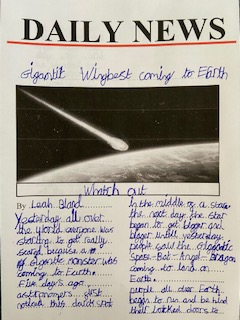 DAILY NEWS
Gigantit Wingbest coming to Earth
Whatch out
By Leah Bland
Yesterday all over
the world everyone was
starting to get really
scared because a
gigantic monster was
coming to Earth.
Five days ago
astronomers just
notices this star
In the middle of a
the next day the star
began to get bigger and
bigger untill yesterday
people saw the Gigantic
Space-Bat-Angel-Dragon
coming to land on
Earth.
people all over Earth
began to run and be hind
their locked doors to